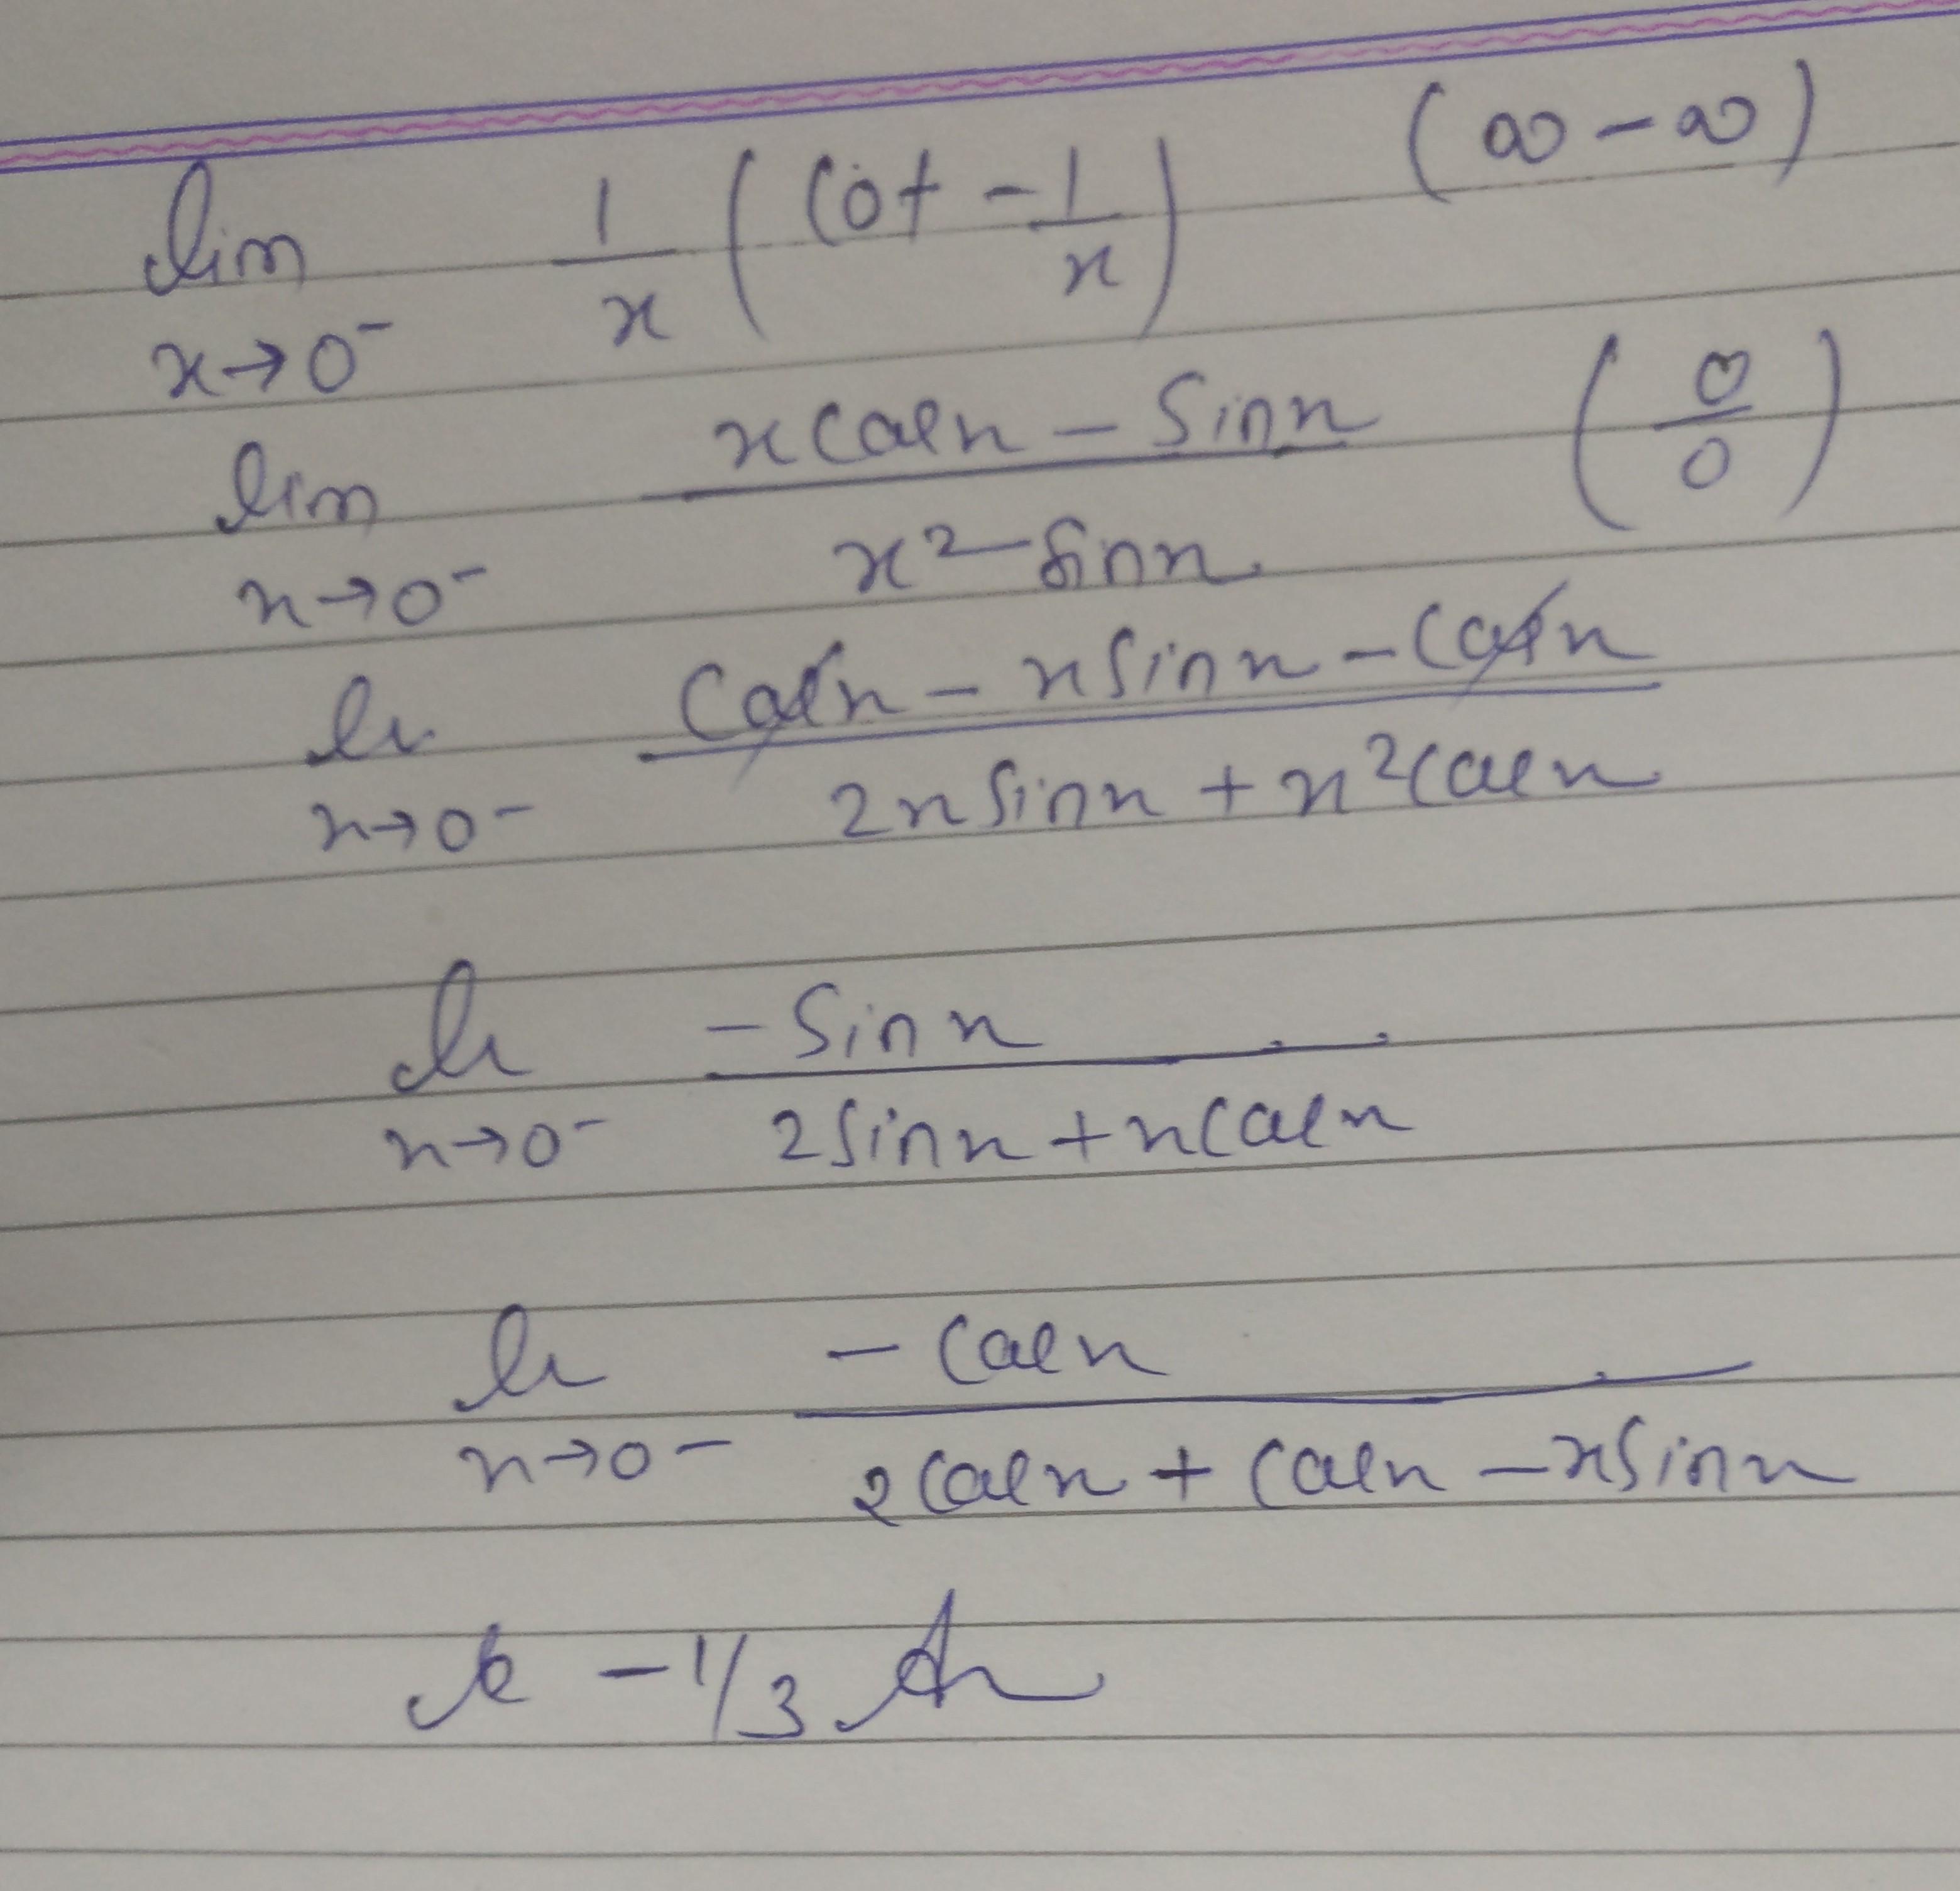 lim x→0⁻ 1/x (Cot - 1/x) (∞ - ∞)
lim x→0⁻ (x Cos x - Sin x)/(x² Sin x) (0/0)
li x→0⁻ (Cos x - x Sin x - Cos x)/(2x Sin x + x² Cos x)
li x→0⁻ (-Sin x)/(2 Sin x + x Cos x)
li x→0⁻ (-Cos x)/(2 Cos x + Cos x - x Sin x)
-1/3 A